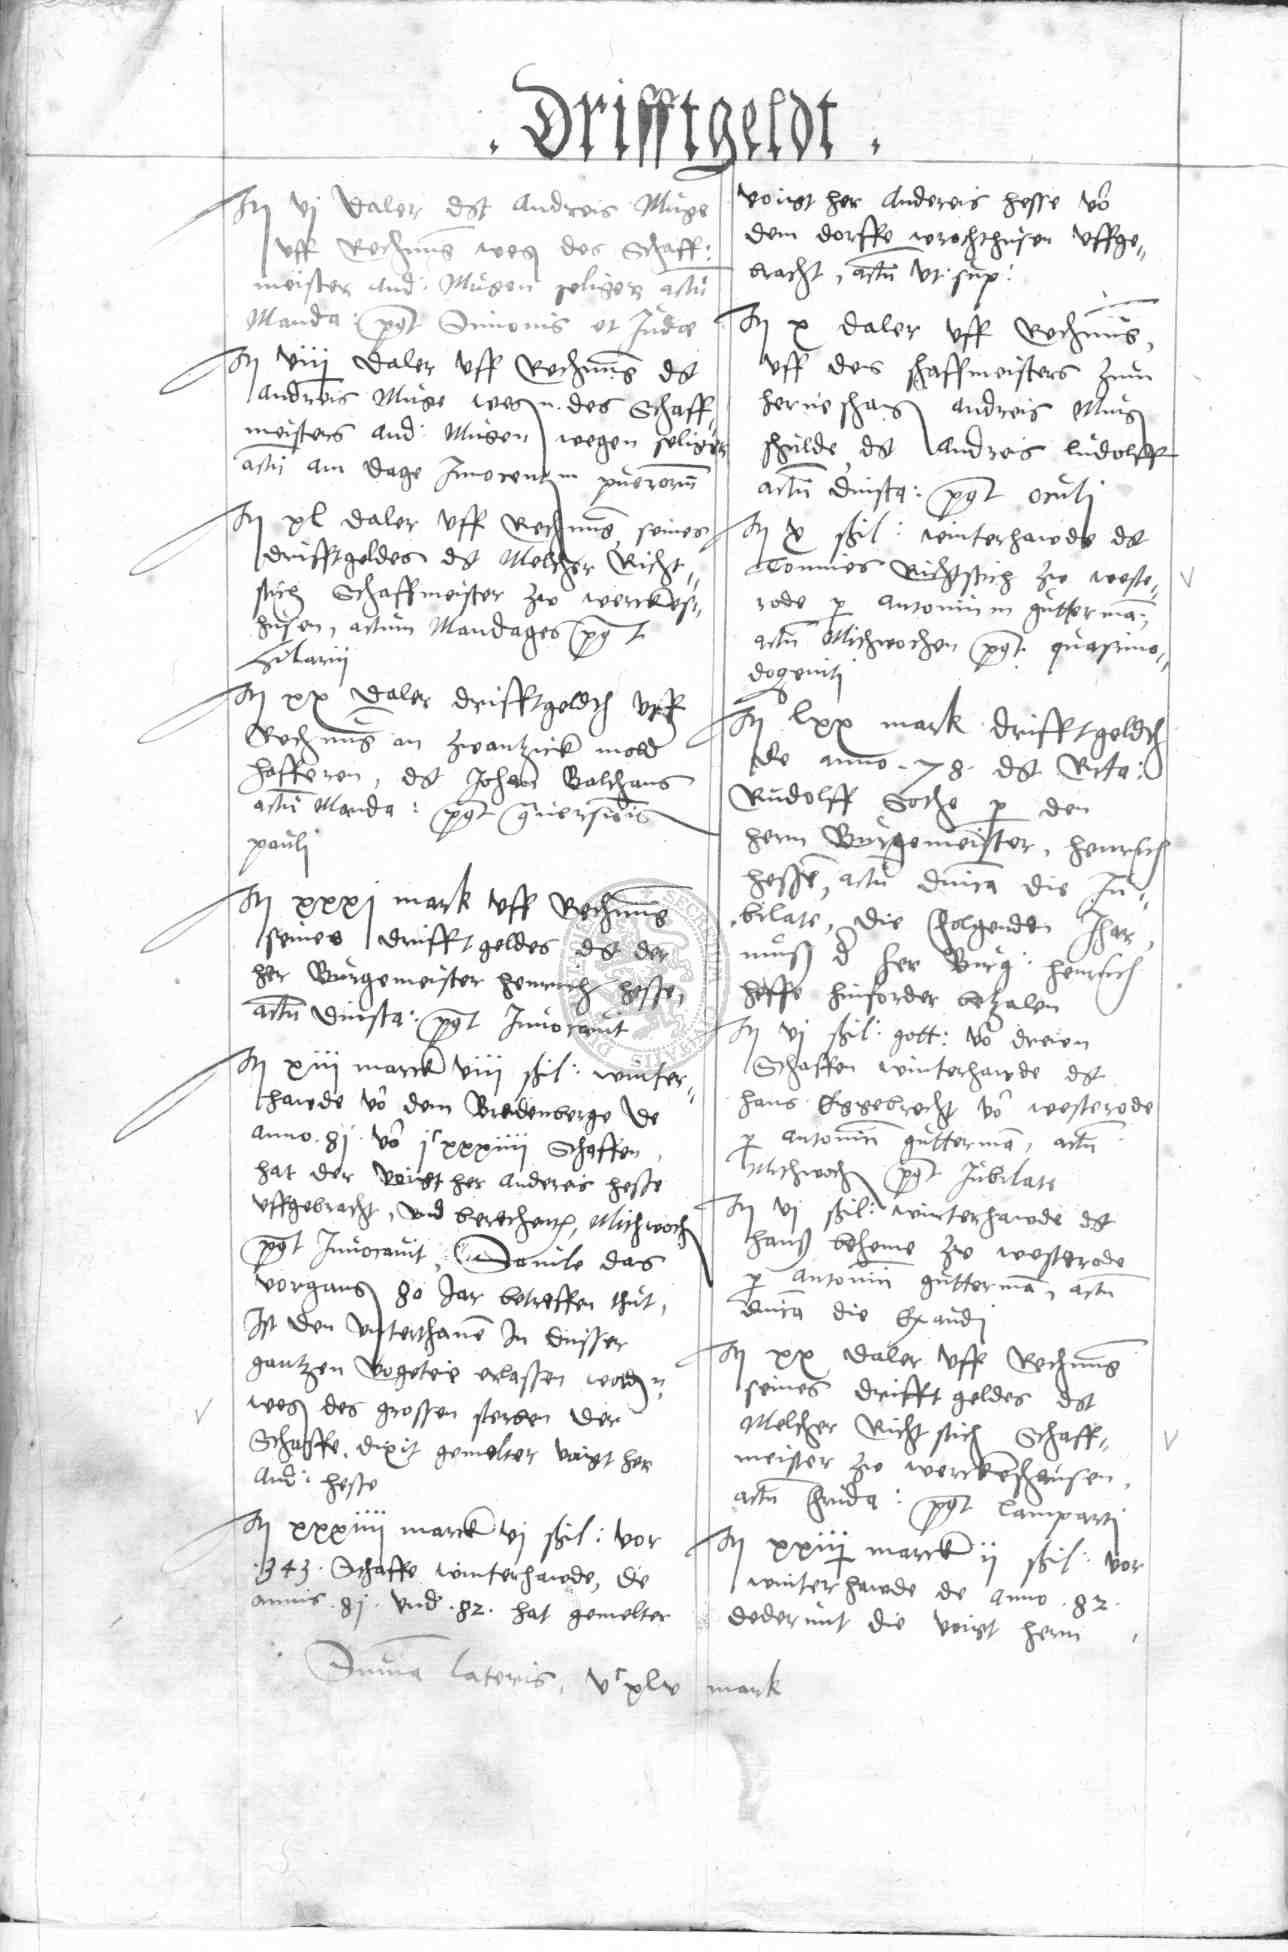 . Drifftgeldt .
It vj Daler dt Andreis Muge
vff Rechnung weg des Schaff:
meister And: Mugen seliger actu
Manda: post Simonis et Judae
It viij Daler vff Rechnung dt
Andreis Muge wegn des Schaff
meisters And: Mugen wegen seliger
actu am dage Innocentum puerorum
It xl daler vff Rechnung seines
drifftgeldes dt Melcher Richt-
stich Schaffmeister zw werckes-
husen, actum Mandages post
Hilarij
It xx Daler drifftgeldes vff
Rechnung an zwantzick
hafferen, dt Johan Balthaus
actu Manda: post conversionis
pauli
It xxxj mark vff Rechnung
seines drifftgeldes dt der
her Burgemeister Henrich Hesse,
actum Dinsta: post Invocavit
It xiij marck viij ßil: winter-
hawde vo dem Bredenberge de
anno .81. vo jc xxxiiij Schaffen,
hat der voigt her Andereis Hesse
vffgebracht, vnd berechent, Mithwoch
post Invocavit, Souile das
vorgang 80 Jar betreffen thut,
Ist den vnterthanen In disser
gantzen vogeteie erlassen worden
weg des grossen sterben der
Schaffe, dixit gemelter voigt her
And: Hesse
It xxxiiij marck vj ßil: vor
.343. Schaffe winterhawde, de
annis .81. vnd .82. hat gemelter
voigt her Andereis Hesse vo
dem dorffe vffge-
bracht, actu vt sup:
It x daler vff Rechnung,
vff des schaffmeisters zum
Andreis Mug
schulde dt Andreis Ludolff
actum Dinsta: post oculi
It x ßil: winterhawde dt
Tonnies Richtstich zw weste-
rode p Antonium guttermã,
actu Mithwochen post quasimo-
dogeniti
It lxx mark drifftgeldes
de anno .78. dt
Rudolff Gothe p den
herrn Burgemeister, Henrich
Hessen, actu dnica die Ju-
bilate, die folgenden Jhar,
muß d her Burg: Henrich
Hesse hinforder betzalen
It vj ßil: gott: vo dreien
Schaffen winterhawde dt
Hans Eggebrecht vo westerode
p Antonium guttermã, actu
Mithwoch post Jubilate
It vj ßil: winterhawde dt
Hanß Beheme zw westerode
p Antonium guttermã, actu
dnica die Exaudi
It xx daler vff Rechnung
seines drifft geldes dt
Melcher Richtstich Schaff-
meister zw werckeshausen,
actu frida: post Lamparti
It xxiij marck ij ßil: vor
winterhawde de anno .82.
dederunt die voigt herrn
Summa lateris, vc xlv mark